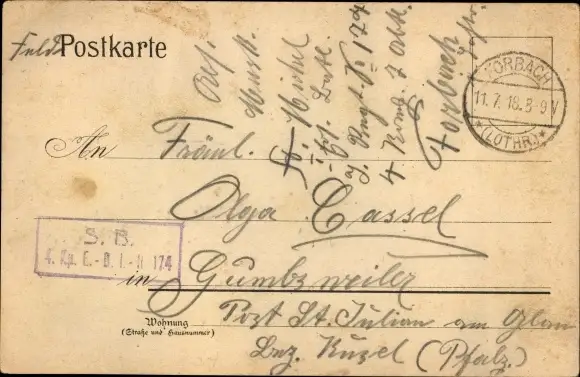 Feld Postkarte
Abs.
Musk.
Michel
I. Ers. Batl.
J. Regt. No 174
4 Komp. 7 Abt.
Forbach
FORBACH
11.7.16.8-9V
* (LOTHR.) *
An Fräul.
Olga Cassel
S. B.
4. Kp. E.-B. I.-R. 174
in Gumbsweiler
Wohnung
(Straße und Hausnummer)
Post St. Julian am Glan
Bez. Kusel (Pfalz.)